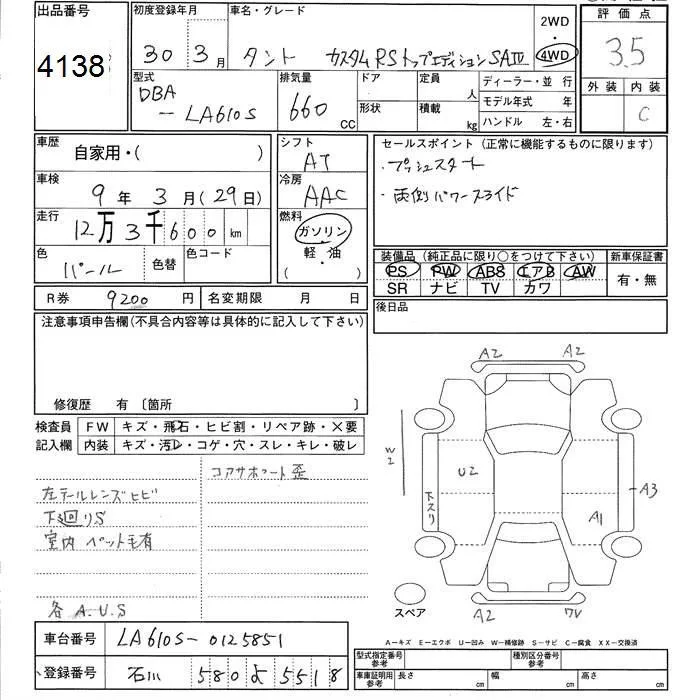 出品番号
4138
初度登録年月
30 3月
車名・グレード
タント カスタムRSトップエディションSAIV
2WD
・
4WD
評価点
3.5
外装 内装
C
型式
DBA
ー LA610S
排気量
660 CC
ドア
形状
定員 人
積載 kg
ディーラー・並 行
モデル年式 年
ハンドル 左・右
車歴
自家用・( )
シフト
AT
セールスポイント(正常に機能するものに限ります)
・プッシュスタート
・両側パワースライド
車検
9年 3月(29日)
冷房
AAC
走行
12万3千600km
燃料
ガソリン
・
軽・油
( )
色
パール
色替
色コード
装備品(純正品に限り○をつけて下さい)
PS PW ABS エアB AW
SR ナビ TV カワ
新車保証書
有・無
R券 9200円
名変期限 月 日
後日品
注意事項申告欄(不具合内容等は具体的に記入して下さい)
修復歴 有〔箇所 〕
検査員
記入欄
FW キズ・飛石・ヒビ割・リペア跡・×要
内装 キズ・汚レ・コゲ・穴・スレ・キレ・破レ
コアサポート歪
左テールレンズヒビ
下廻りS
室内 ペット毛有
各 A.U.S
A2 A2
W2
U2
下スリ
A3
A1
スペア
A2
A-キズ E-エクボ U-凹み W-補修跡 S-サビ C-腐食 XX-交換済
車台番号 LA610S-0125851
登録番号 石川 580 よ 5518
型式指定番号
参考
種別区分番号
参考
車庫証明用
参考
長さ cm 幅 cm 高さ cm